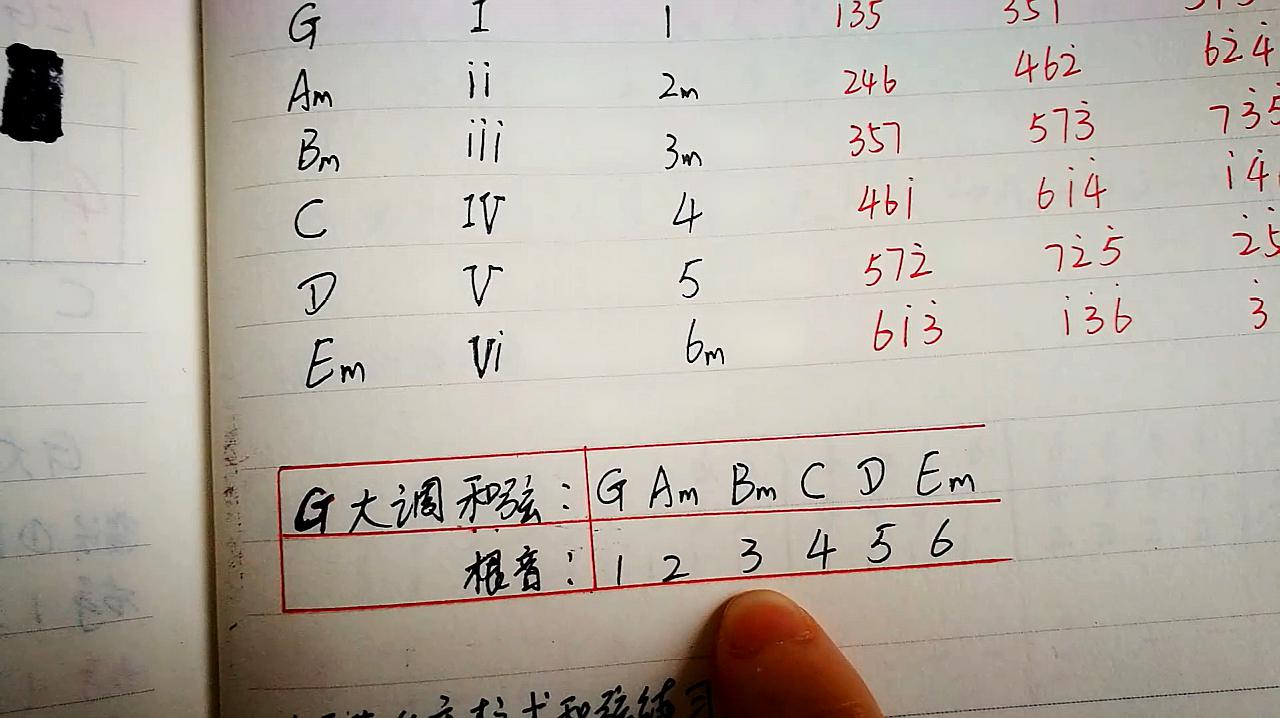 G I 1 135 351
Am ii 2m 246 462̇ 62̇4̇
Bm iii 3m 357 573̇ 73̇5̇
C IV 4 461̇ 61̇4̇ 1̇4̇
D V 5 572̇ 72̇5̇ 2̇5̇
Em Vi 6m 61̇3̇ 1̇3̇6̇ 3̇
G大调和弦： G Am Bm C D Em
根音： 1 2 3 4 5 6
和弦练习